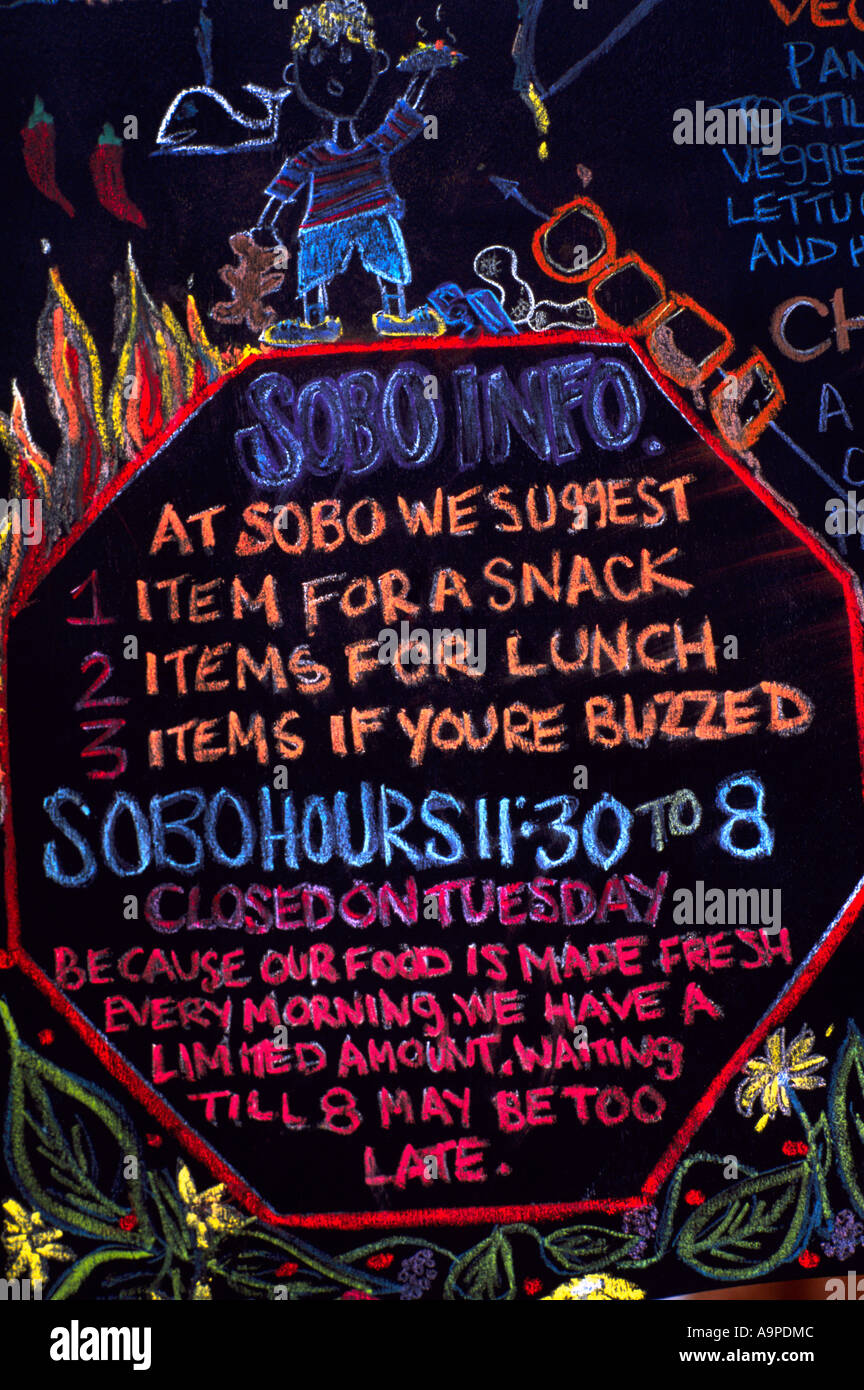 SOBO INFO.
AT SOBO WE SUGGEST
1 ITEM FOR A SNACK
2 ITEMS FOR LUNCH
3 ITEMS IF YOURE BUZZED
SOBO HOURS 11:30 TO 8
CLOSED ON TUESDAY
BECAUSE OUR FOOD IS MADE FRESH
EVERY MORNING. WE HAVE A
LIMITED AMOUNT. WAITING
TILL 8 MAY BE TOO
LATE.
PAN
TORTIL
VEGGIE
LETTU
AND H
CH
A
alamy
Image ID: A9PDMC
www.alamy.com